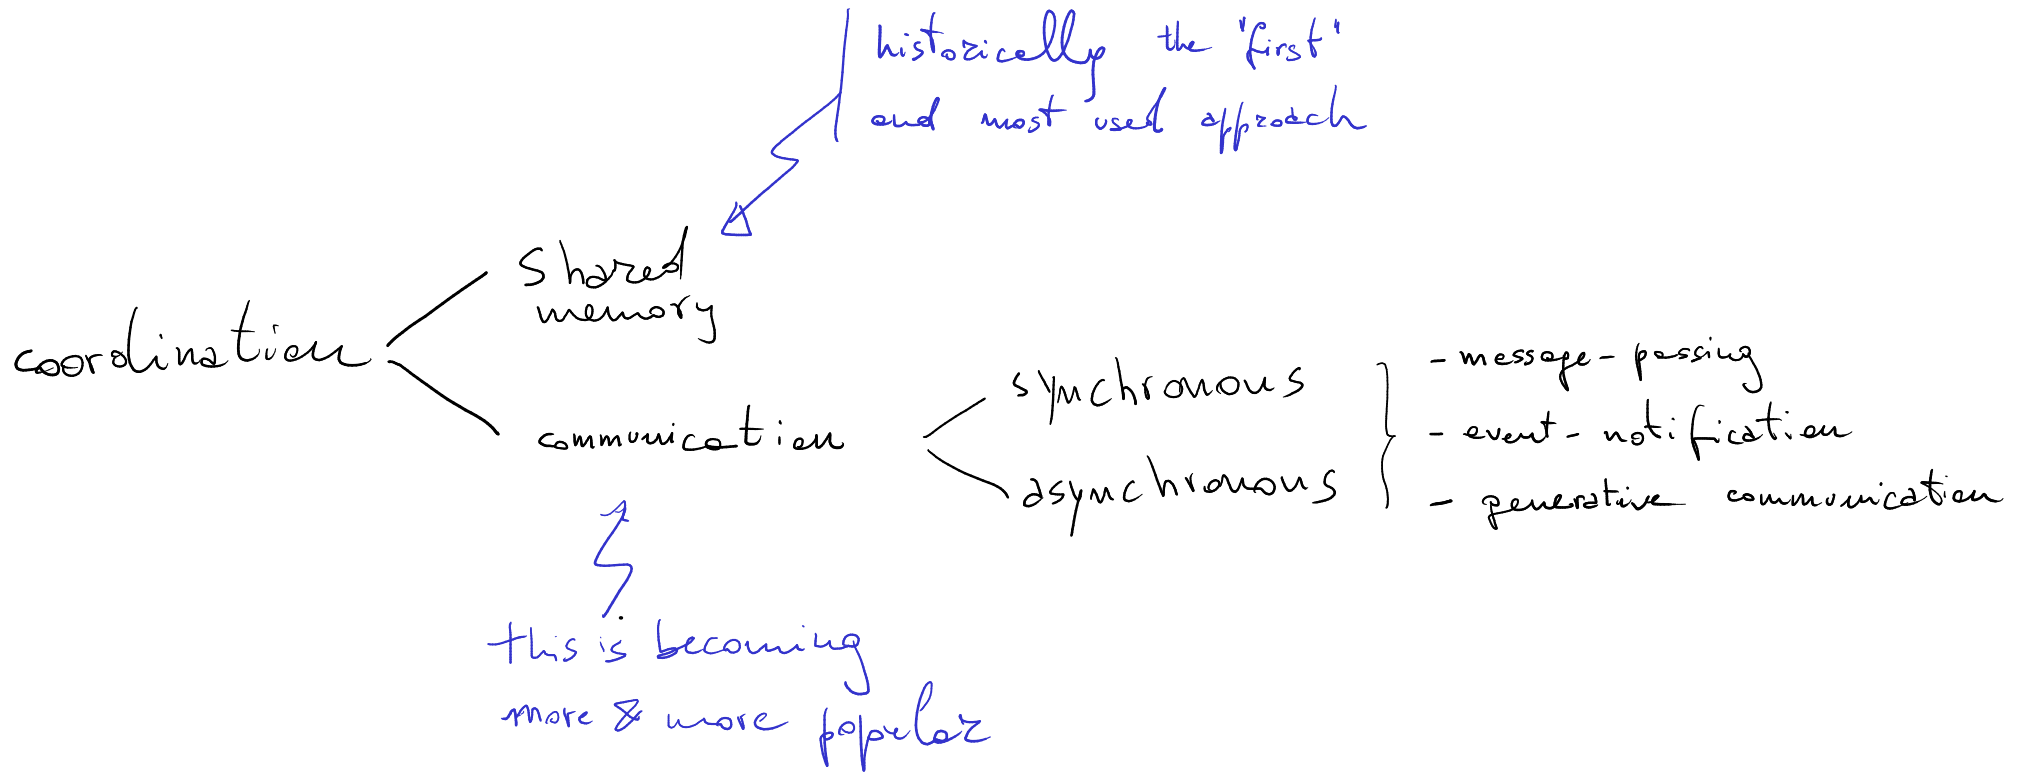 historically the "first"
and most used approach
Shared
memory
coordination
communication
synchronous
asynchronous
- message-passing
- event-notification
- generative communication
this is becoming
more & more popular